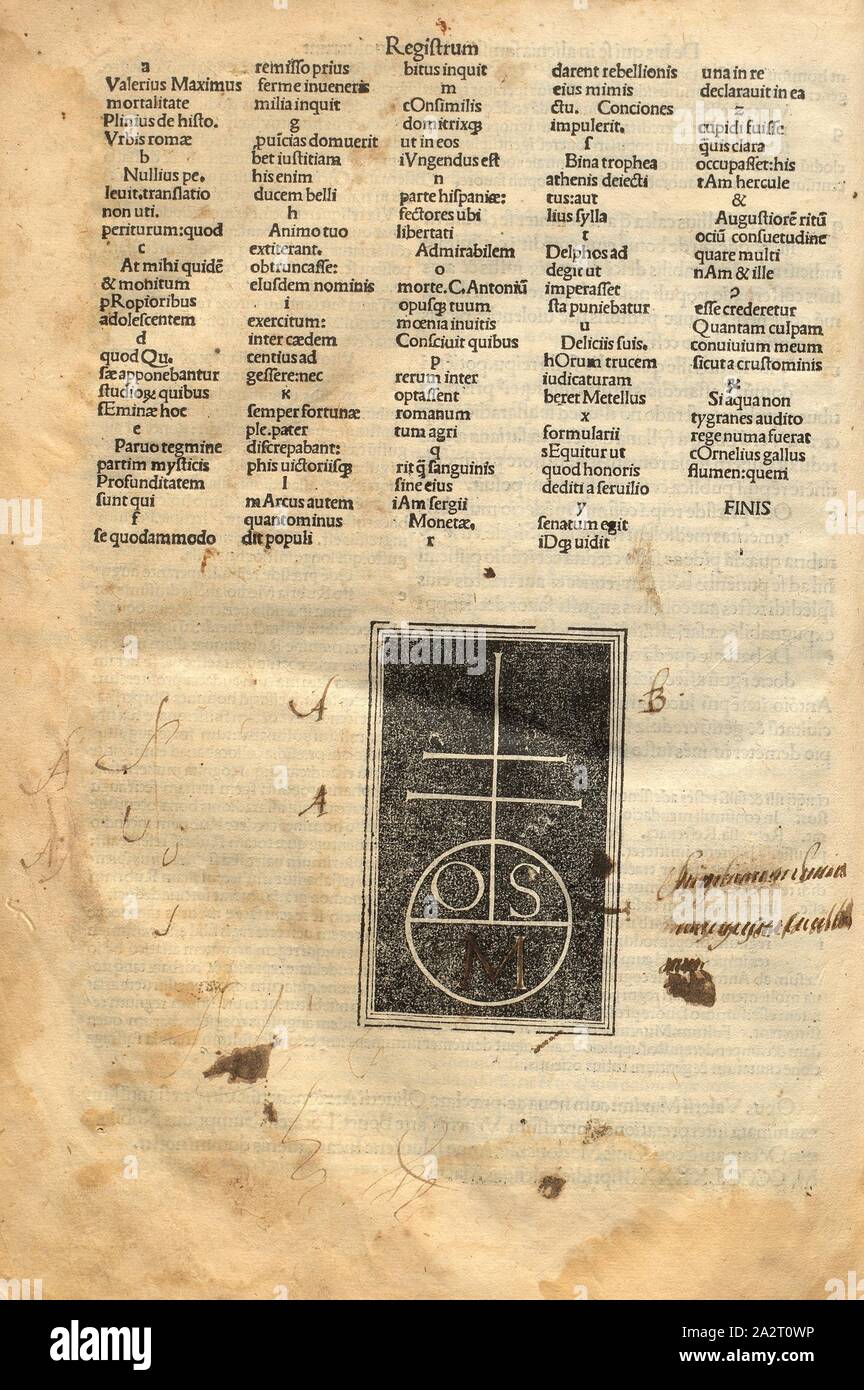 Registrum
a
Valerius Maximus
mortalitate
Plinius de histo.
Vrbis romæ
b
Nullius pe.
leuit.translatio
non uti.
periturum:quod
c
At mihi quidē
& monitum
pRopioribus
adolescentem
d
quod Qu.
sæ apponebantur
studioqꝫ quibus
sEminæ hoc
e
Paruo tegmine
partim mysticis
Profunditatem
sunt qui
f
se quodammodo
remisso prius
ferme inueneris
milia inquit
g
ꝓuicias domuerit
bet iustitiam
his enim
ducem belli
h
Animo tuo
extiterant.
obtruncasse:
eiusdem nominis
i
exercitum:
inter cædem
centius ad
gessere:nec
K
semper fortunæ
ple.pater
discrepabant:
phis uictoriisqꝫ
l
mArcus autem
quantominus
dit populi
bitus inquit
m
cOnsimilis
domitrixqꝫ
ut in eos
iVngendus est
n
parte hispaniæ:
sectores ubi
libertati
Admirabilem
o
morte.C.Antoniū
opusqꝫ tuum
mœnia inuitis
Consciuit quibus
p
rerum inter
optassent
romanum
tum agri
q
rit q̃ sanguinis
sine eius
iAm sergii
Monetæ.
r
darent rebellionis
eius mimis
ctu. Conciones
impulerit.
s
Bina trophea
athenis deiecti
tus:aut
lius sylla
t
Delphos ad
degit ut
imperasset
sta puniebatur
u
Deliciis suis.
hOrum trucem
iudicaturam
beret Metellus
x
formularii
sEquitur ut
quod honoris
dediti a seruilio
y
senatum egit
iDqꝫ uidit
una in re
declarauit in ea
z
cupidi fuisse
q̃uis clara
occupasset:his
tAm hercule
&
Augustiorē ritū
ociū consuetudine
quare multi
nAm & ille
ꝯ
esse crederetur
Quantam culpam
conuiuium meum
sicut a crustominis
ꝝ
Si aqua non
tygranes audito
rege numa fuerat
cOrnelius gallus
flumen:quem
FINIS
A B
A
O S
M
alamy
Image ID: 2A2T0WP
www.alamy.com